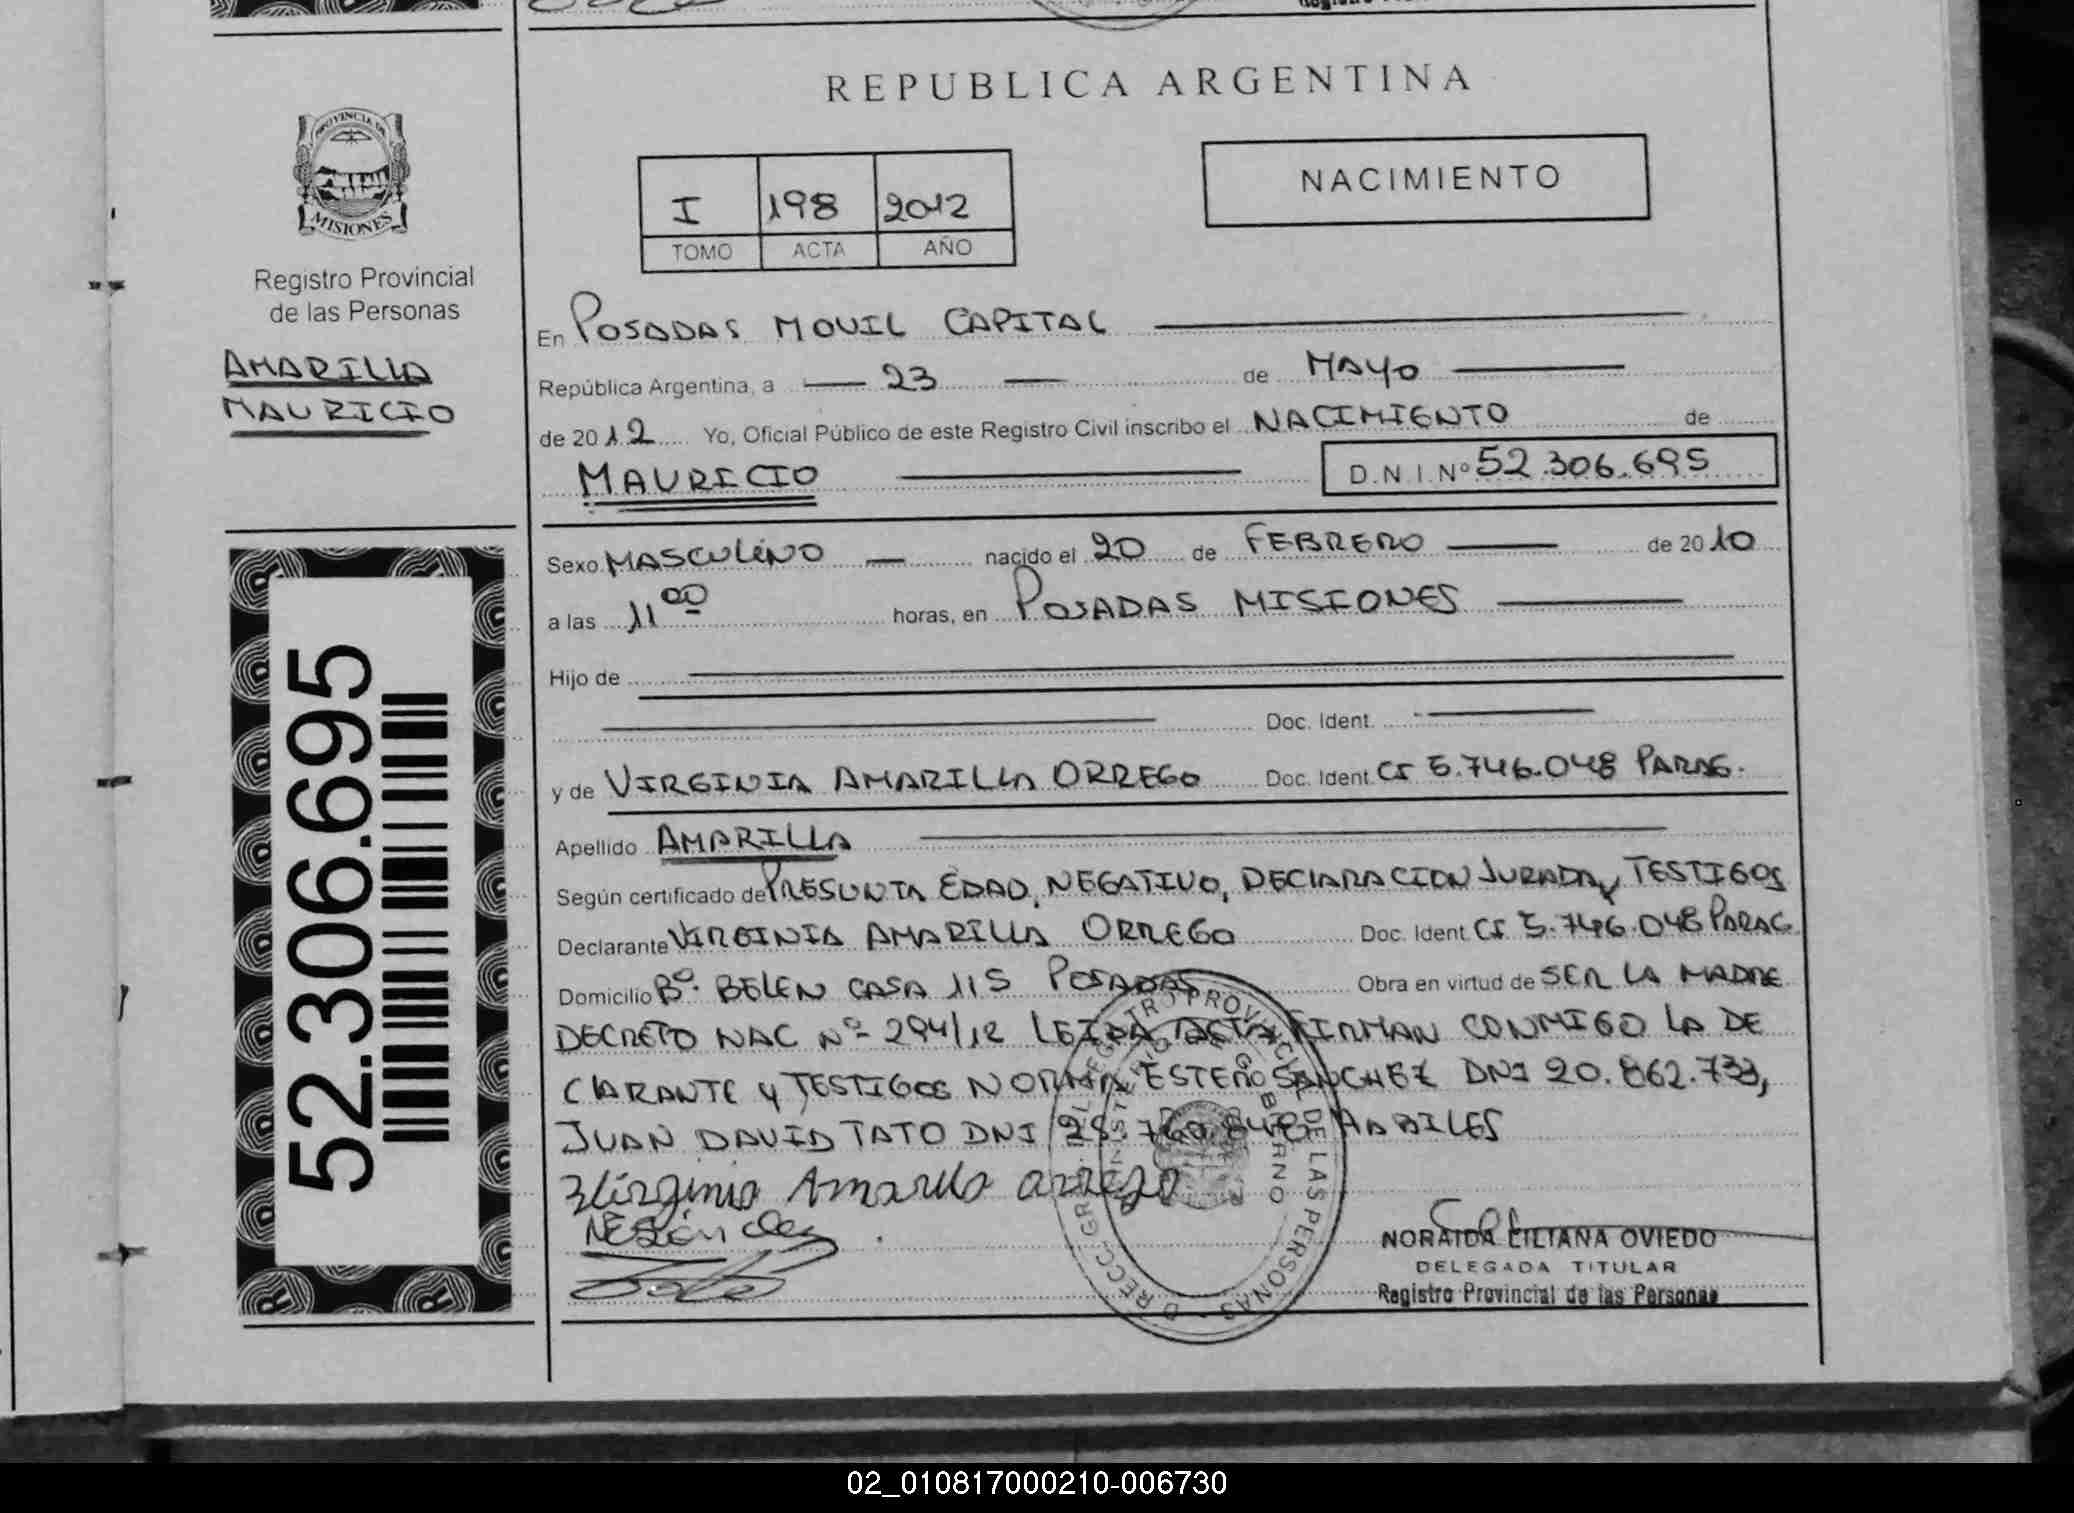 REPUBLICA ARGENTINA
PROVINCIA DE
MISIONES
Registro Provincial
de las Personas
AMARILLA
MAURICIO
I 198 2012
TOMO ACTA AÑO
NACIMIENTO
En POSADAS MOVIL CAPITAL
República Argentina, a 23 de MAYO
de 2012 Yo, Oficial Público de este Registro Civil inscribo el NACIMIENTO de
MAURICIO D.N.I. Nº 52.306.695
Sexo MASCULINO nacido el 20 de FEBRERO de 2010
a las 11 00 horas, en POSADAS MISIONES
Hijo de
Doc. Ident.
y de VIRGINIA AMARILLA ORREGO Doc. Ident. CI 5.746.048 PARAG.
Apellido AMARILLA
Según certificado de PRESUNTA EDAD, NEGATIVO, DECLARACION JURADA y TESTIGOS
Declarante VIRGINIA AMARILLA ORREGO Doc. Ident. CI 5.746.048 PARAG
Domicilio Bº. BELEN CASA 115 POSADAS Obra en virtud de SER LA MADRE
DECRETO NAC Nº 294/12 LEIDA ACTA FIRMAN CONMIGO LA DE
CLARANTE y TESTIGOS NORMA ESTER SANCHEZ DNI 20.862.733,
JUAN DAVID TATO DNI HABILES
Virginia Amarilla orrego
NORAIDA LILIANA OVIEDO
DELEGADA TITULAR
Registro Provincial de las Personas
52.306.695
02_010817000210-006730